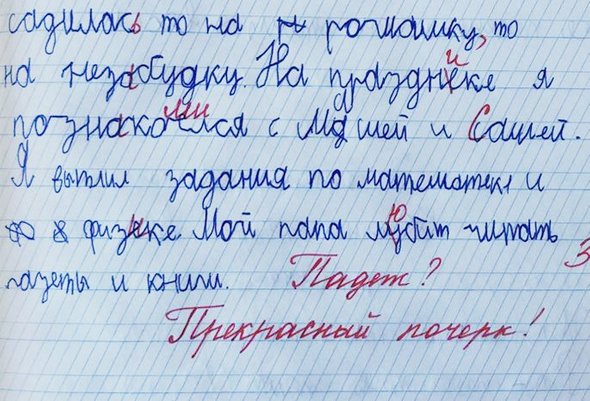 садилась то на ромашку, то
на незабудку. На празднике я
познакомился с Машей и Сашей.
Я выпил задания по математеке и
физике. Мой папа любит читать
газеты и книги. Падеж? 3
Прекрасный почерк!